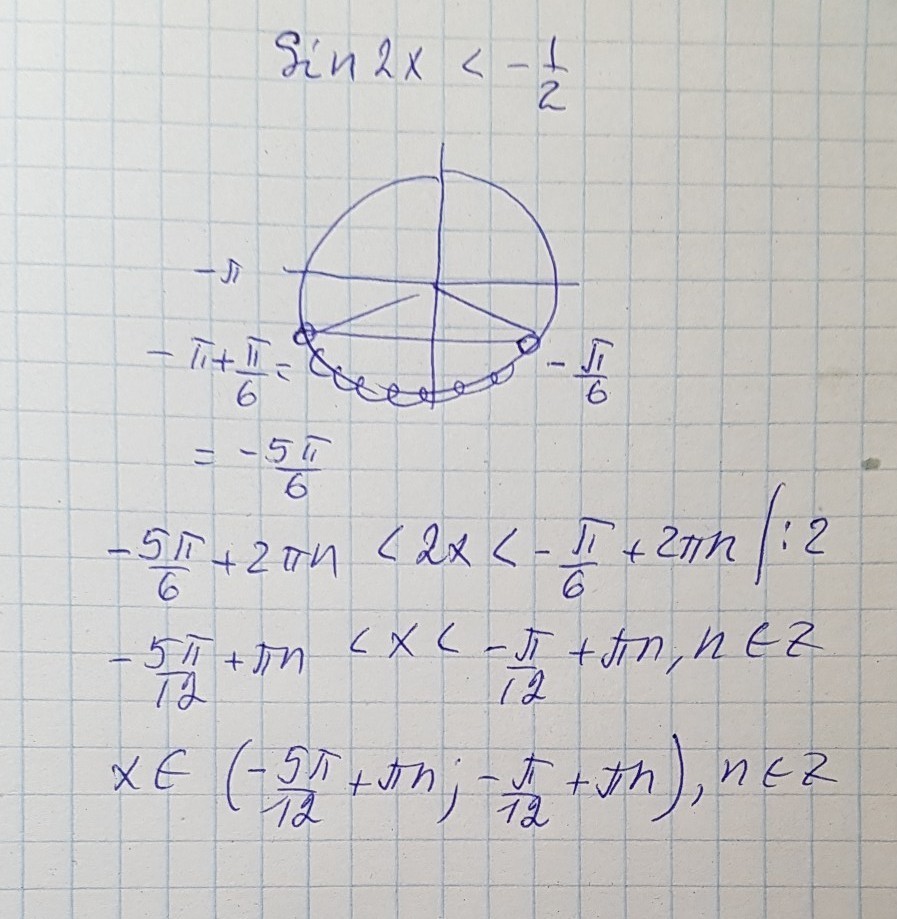 Sin 2x < -1/2
-π
-π + π/6 =
-π/6
= -5π/6
-5π/6 + 2πn < 2x < -π/6 + 2πn | : 2
-5π/12 + πn < x < -π/12 + πn, n ∈ Z
x ∈ (-5π/12 + πn; -π/12 + πn), n ∈ Z